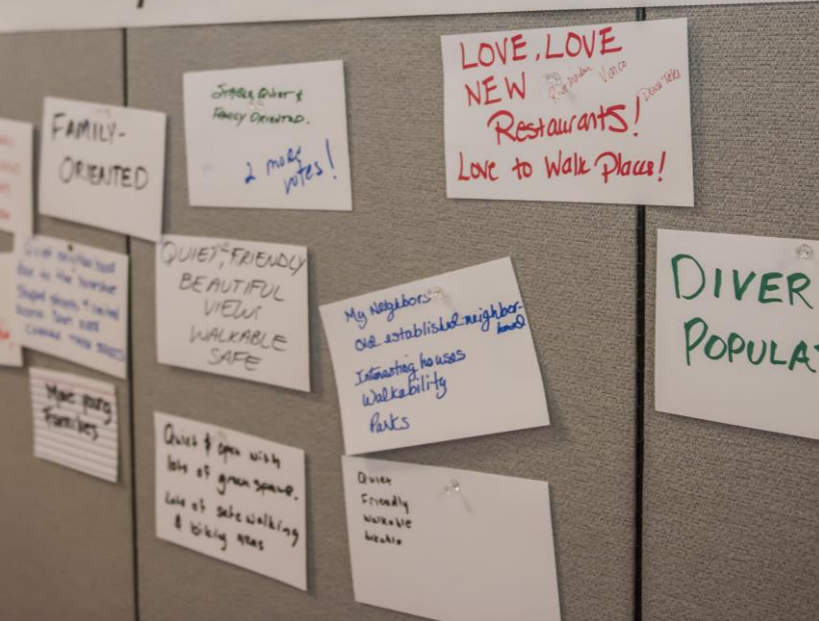 FAMILY-
ORIENTED
STABLE QUIET &
FAMILY ORIENTED.
2 more
votes!
LOVE, LOVE
NEW
Restaurants!
Love to Walk Places!
QUIET, FRIENDLY
BEAUTIFUL
VIEWS
WALKABLE
SAFE
My Neighbors
old established neighbor-
hood
Interesting houses
Walkability
Parks
DIVER
POPULAT
Quiet neighborhood
due to the horseshoe
shaped streets & limited
More young
Families
Quiet & open with
lots of green space.
Lots of safe walking
& biking areas
Quiet
Friendly
Walkable